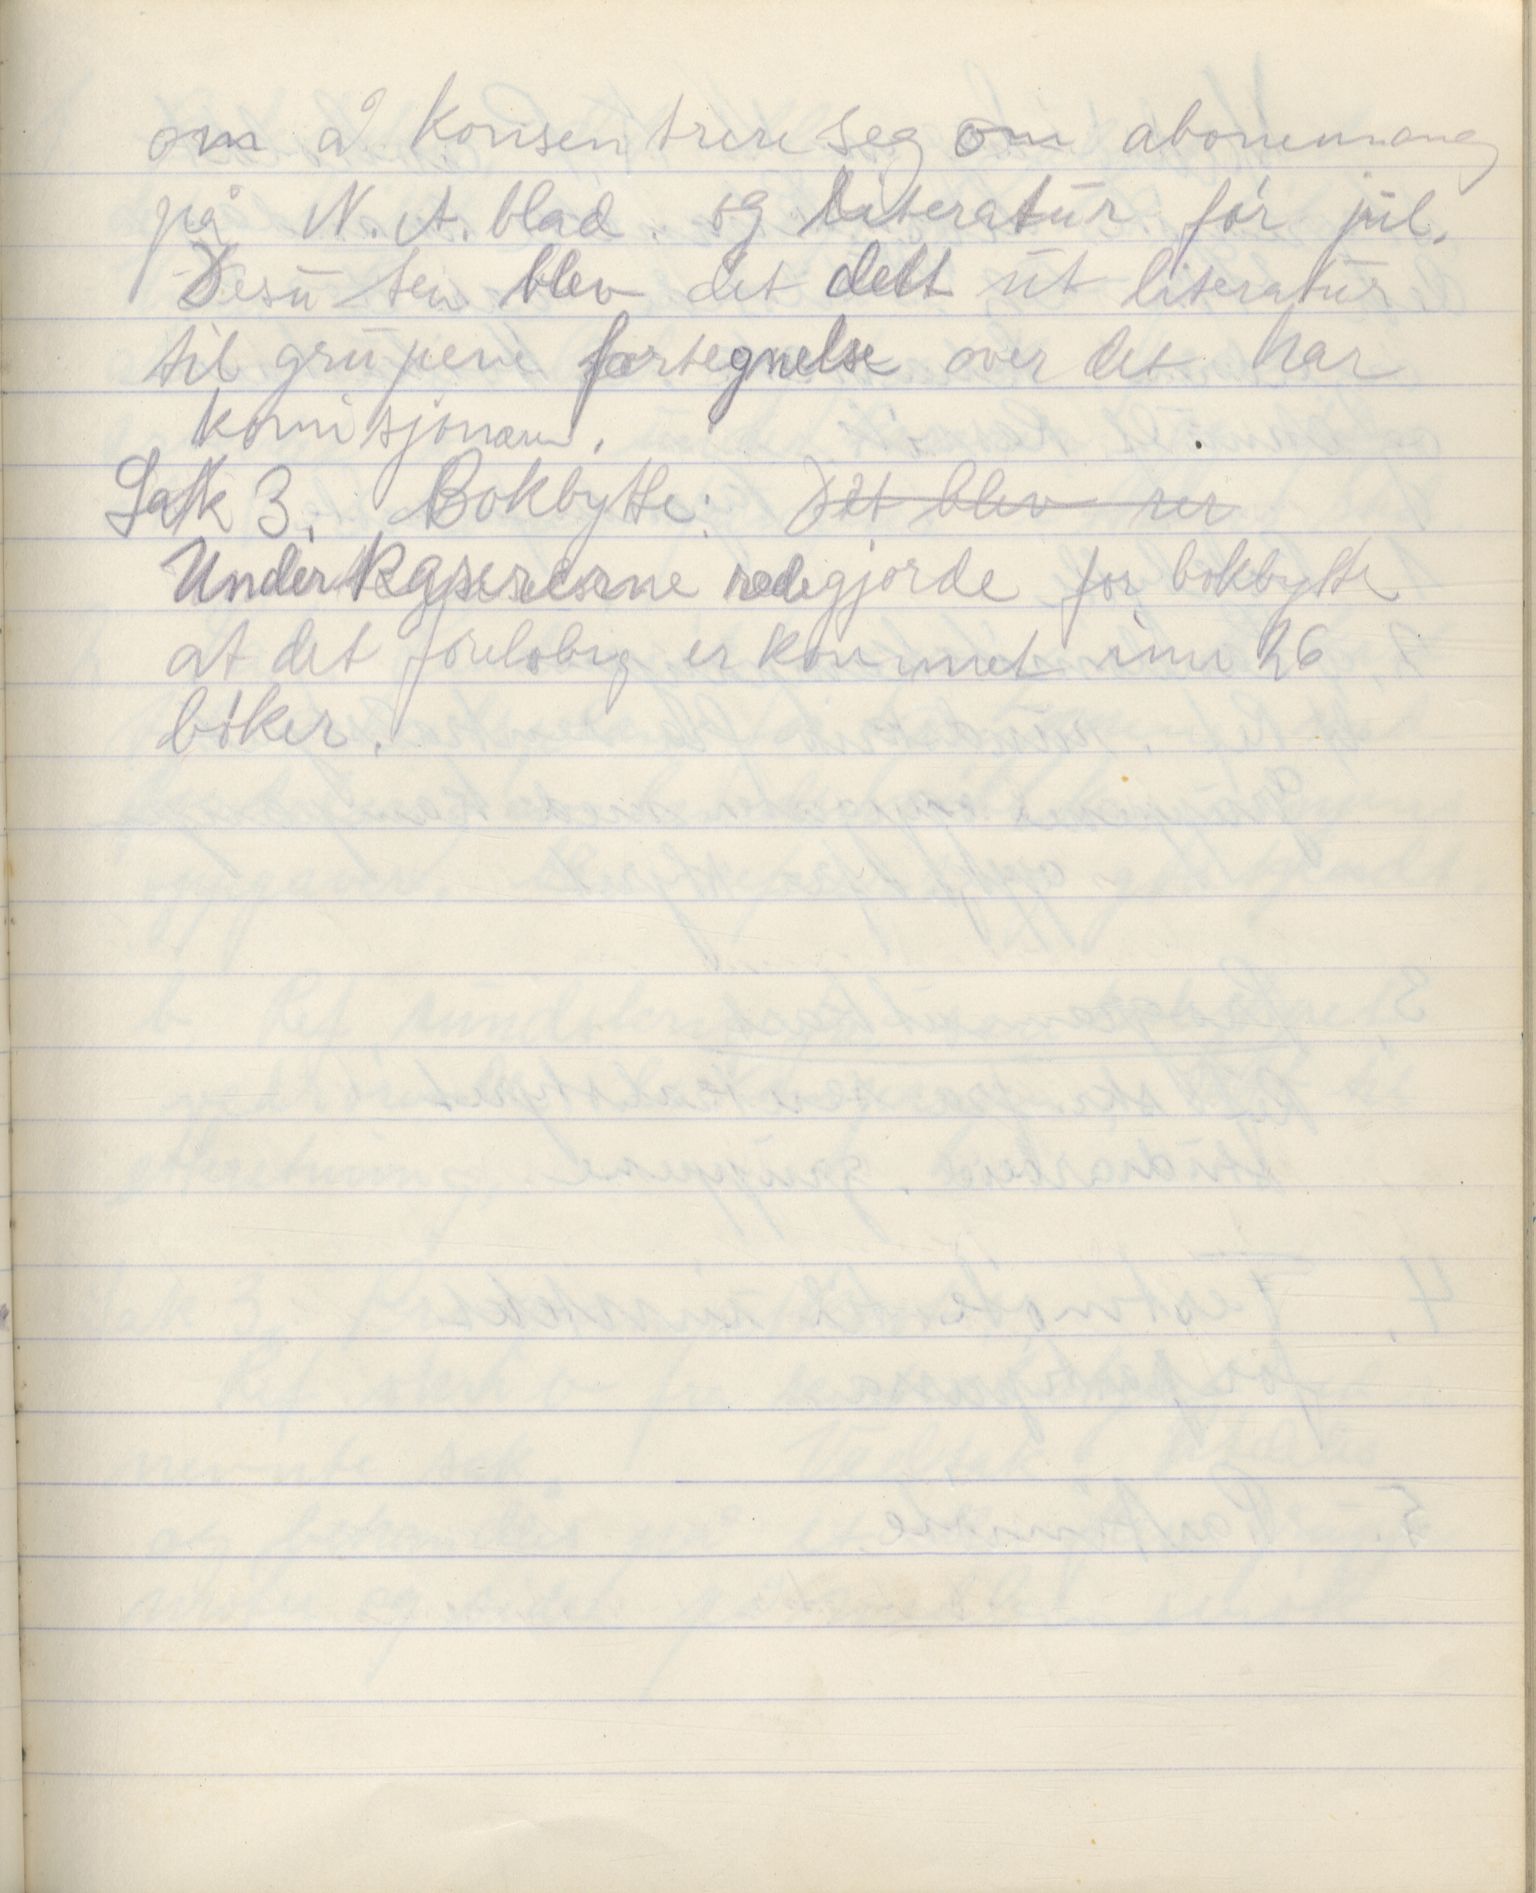 om å konsentrere seg om abonemang
på N. A. blad. og literatur før jul.
Desuten blev det delt ut literatur
til grupene fortegnelse over det har
komisjonær.
Sak 3. Bokbytte: Det blev rer
Underkassererne redegjorde for bokbytte
at det foreløbig er kommet inn 26
bøker.